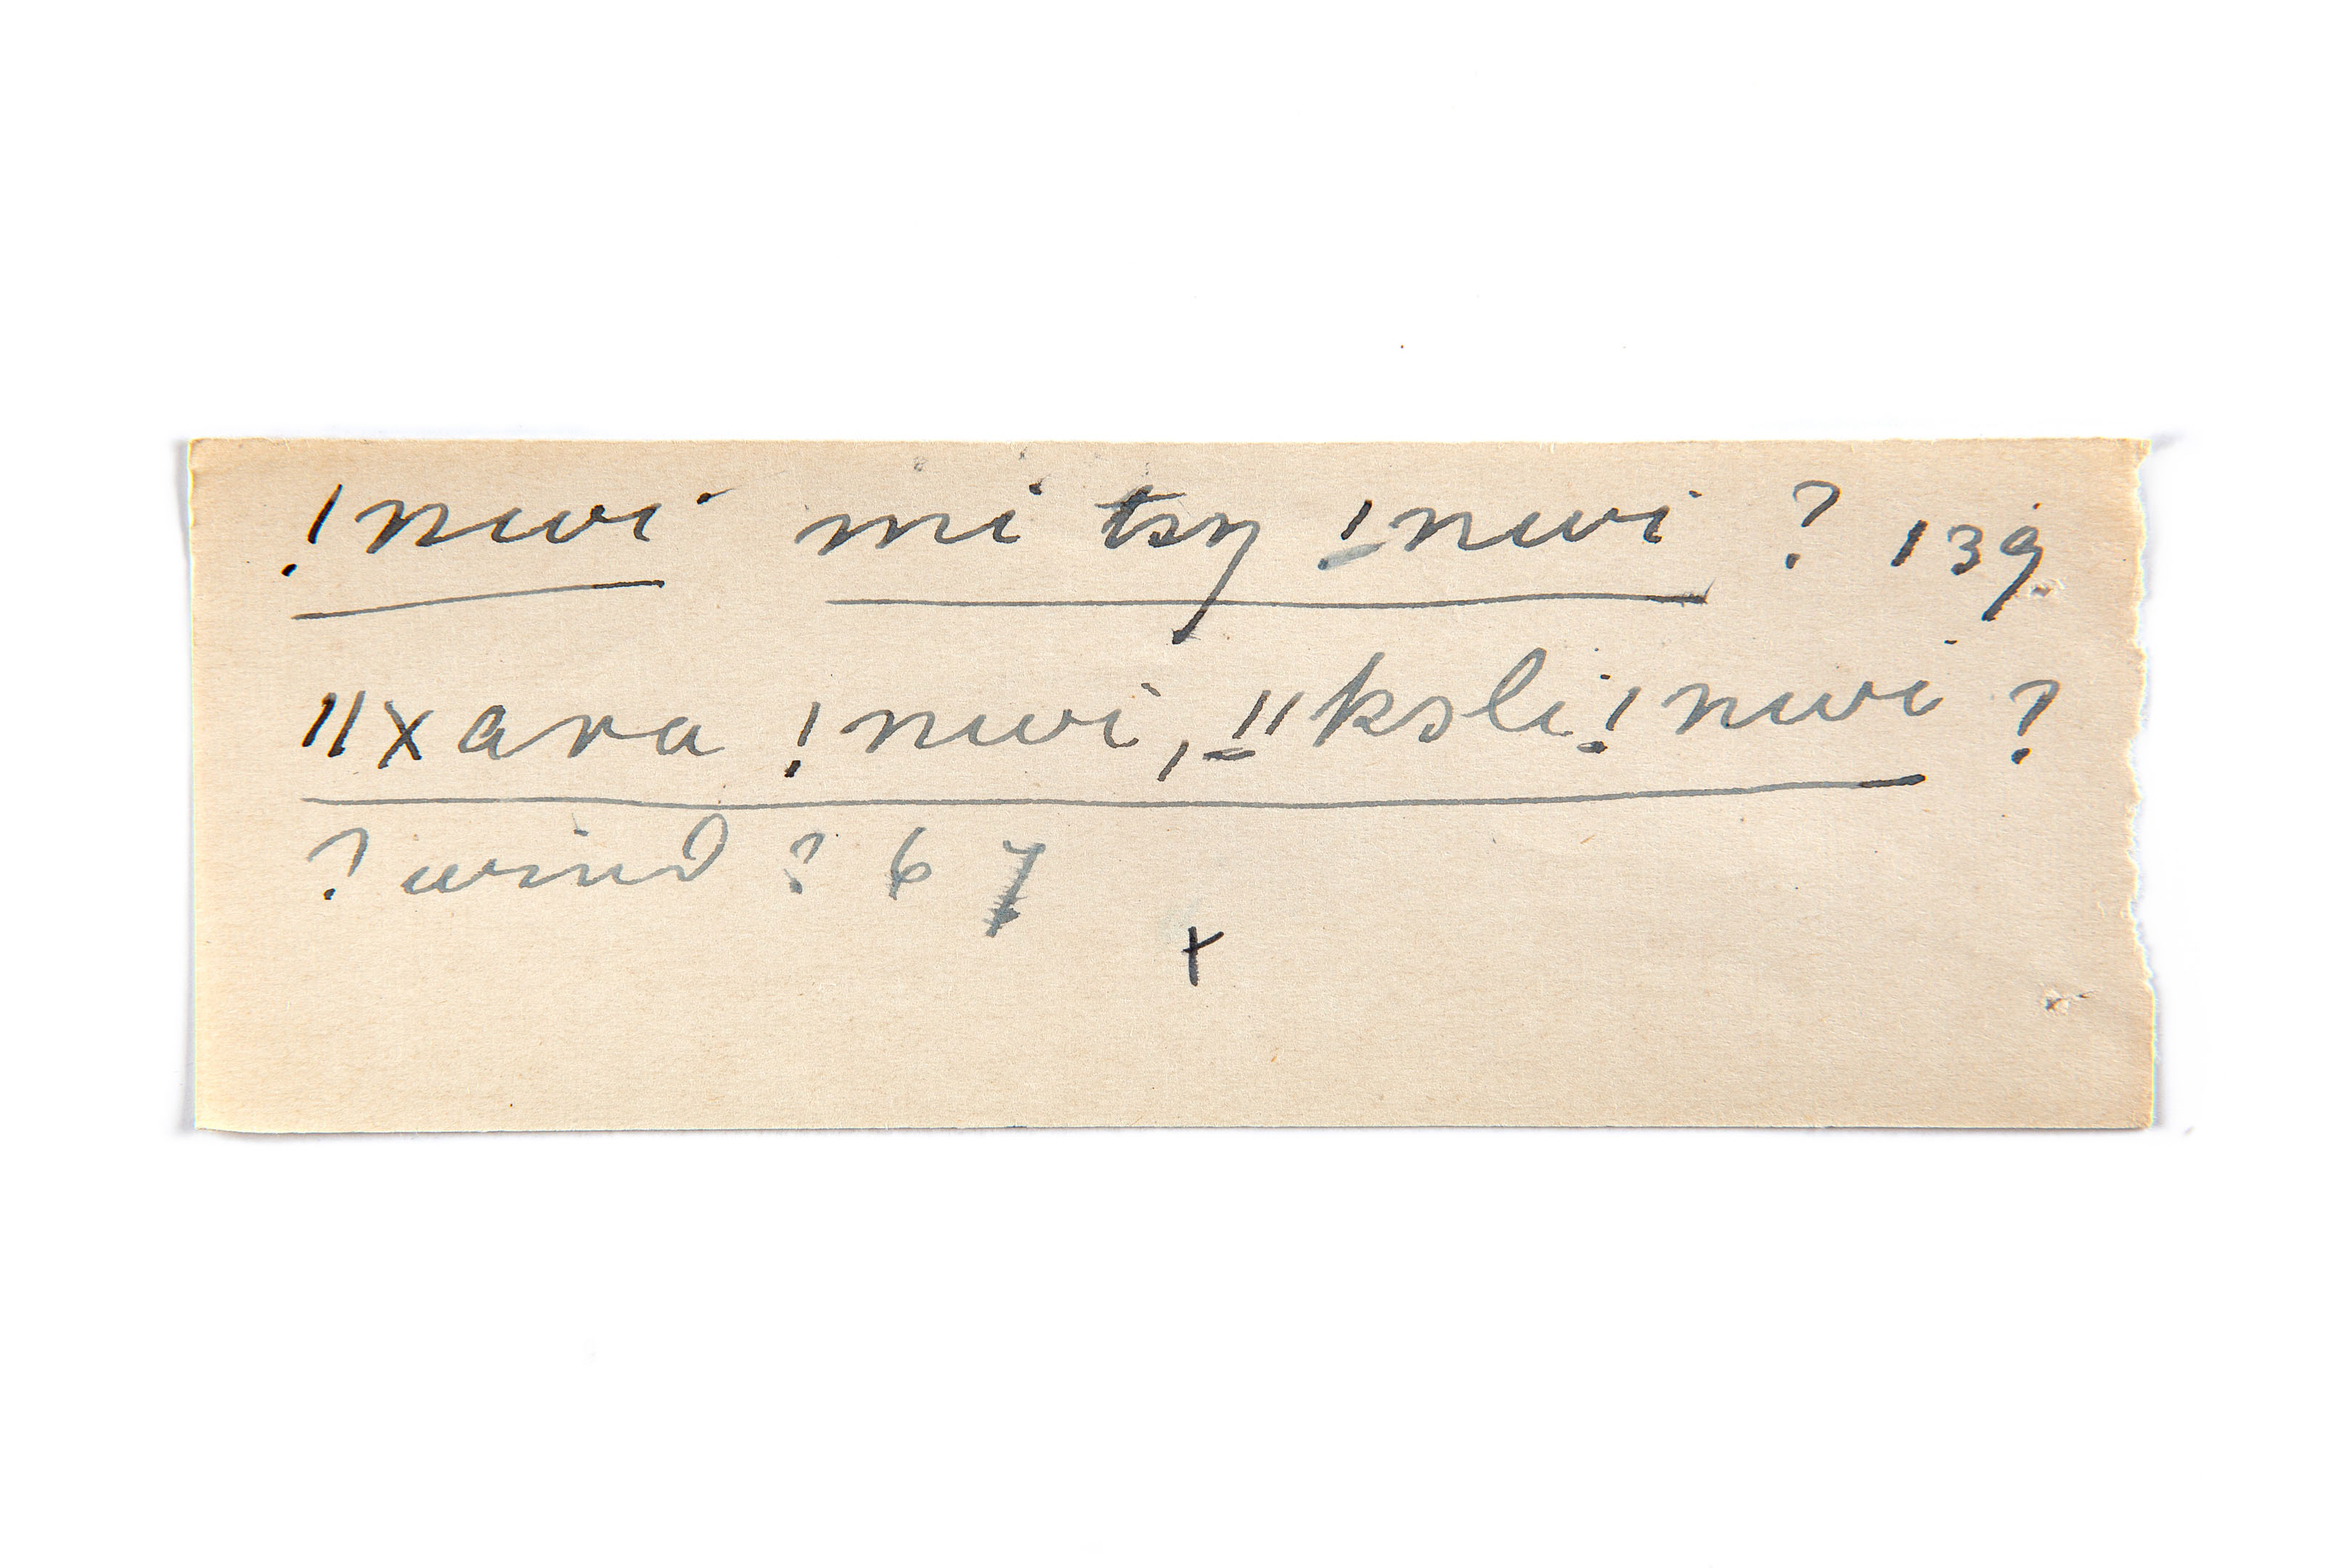 !nwi mi tsy !nwi ? 139
ǁxara !nwi, ǁksli !nwi ?
? wind ? 9 7
+